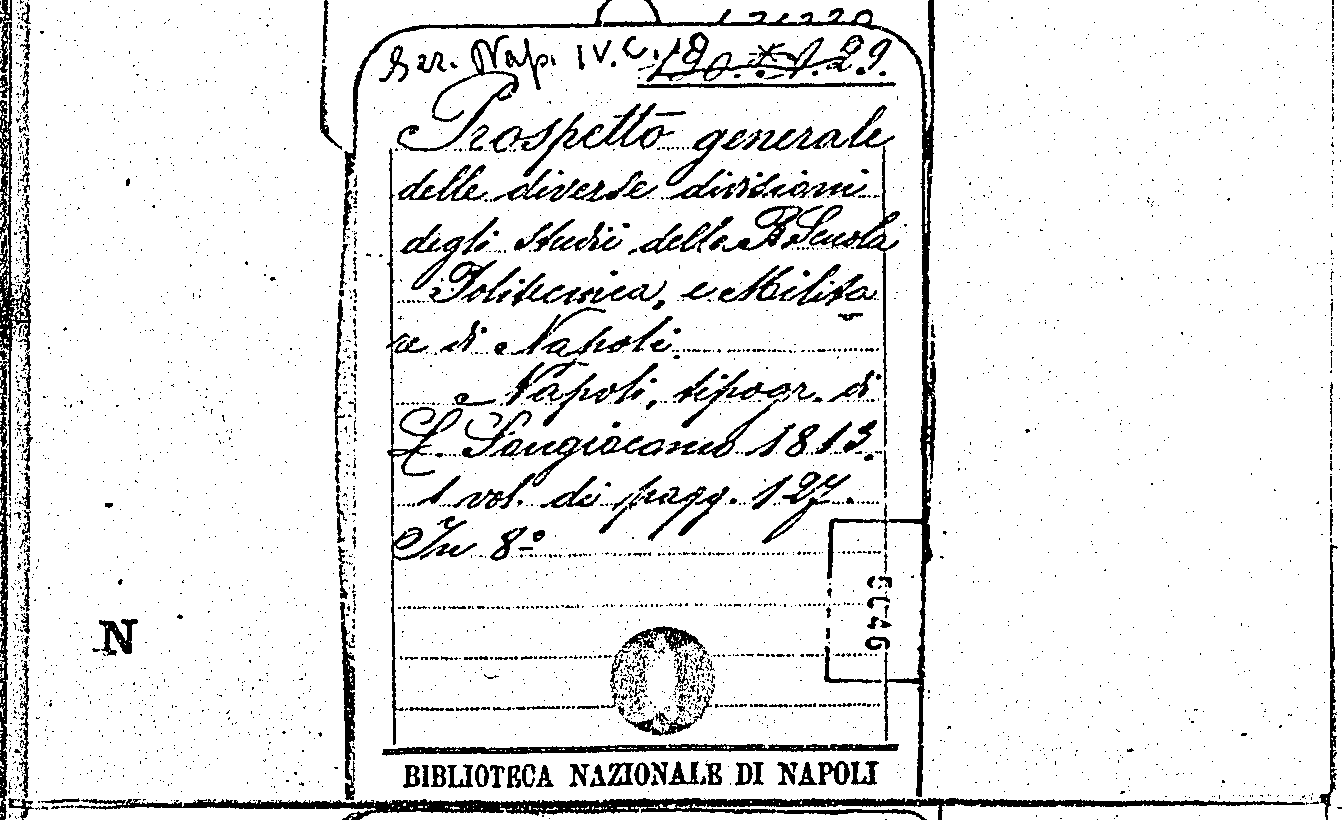 Sez. Nap. IV. C.
Prospetto generale
delle diverse divisioni
degli studii della R. Scuola
Politecnica, e Milita
re di Napoli.
Napoli, tipogr. di
L. Sangiacomo 1813.
1 vol. di pagg. 127.
In 8º
5C46
N
BIBLIOTECA NAZIONALE DI NAPOLI